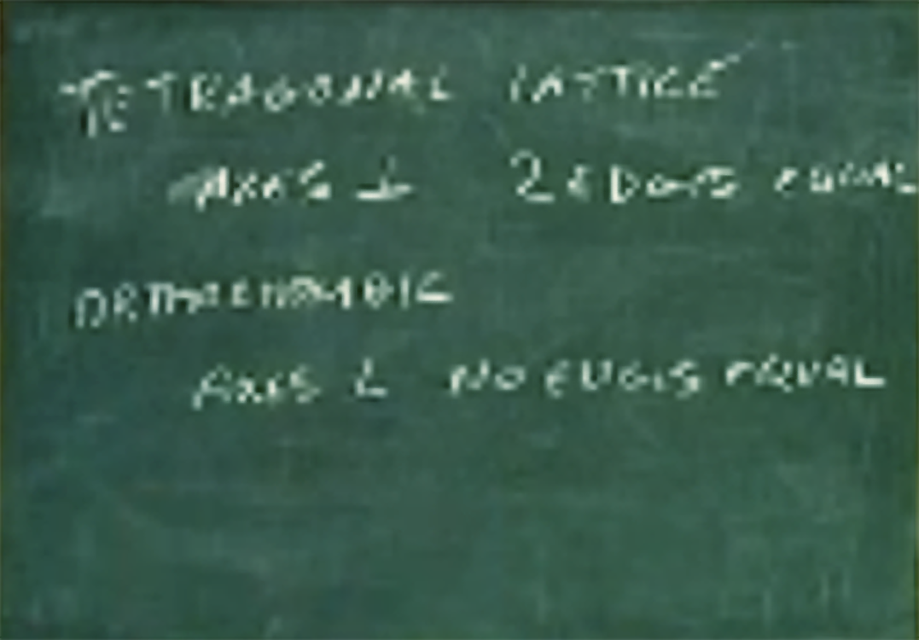 TETRAGONAL LATTICE
AXES ⊥ 2 EDGES EQUAL
ORTHORHOMBIC
AXES ⊥ NO EDGES EQUAL